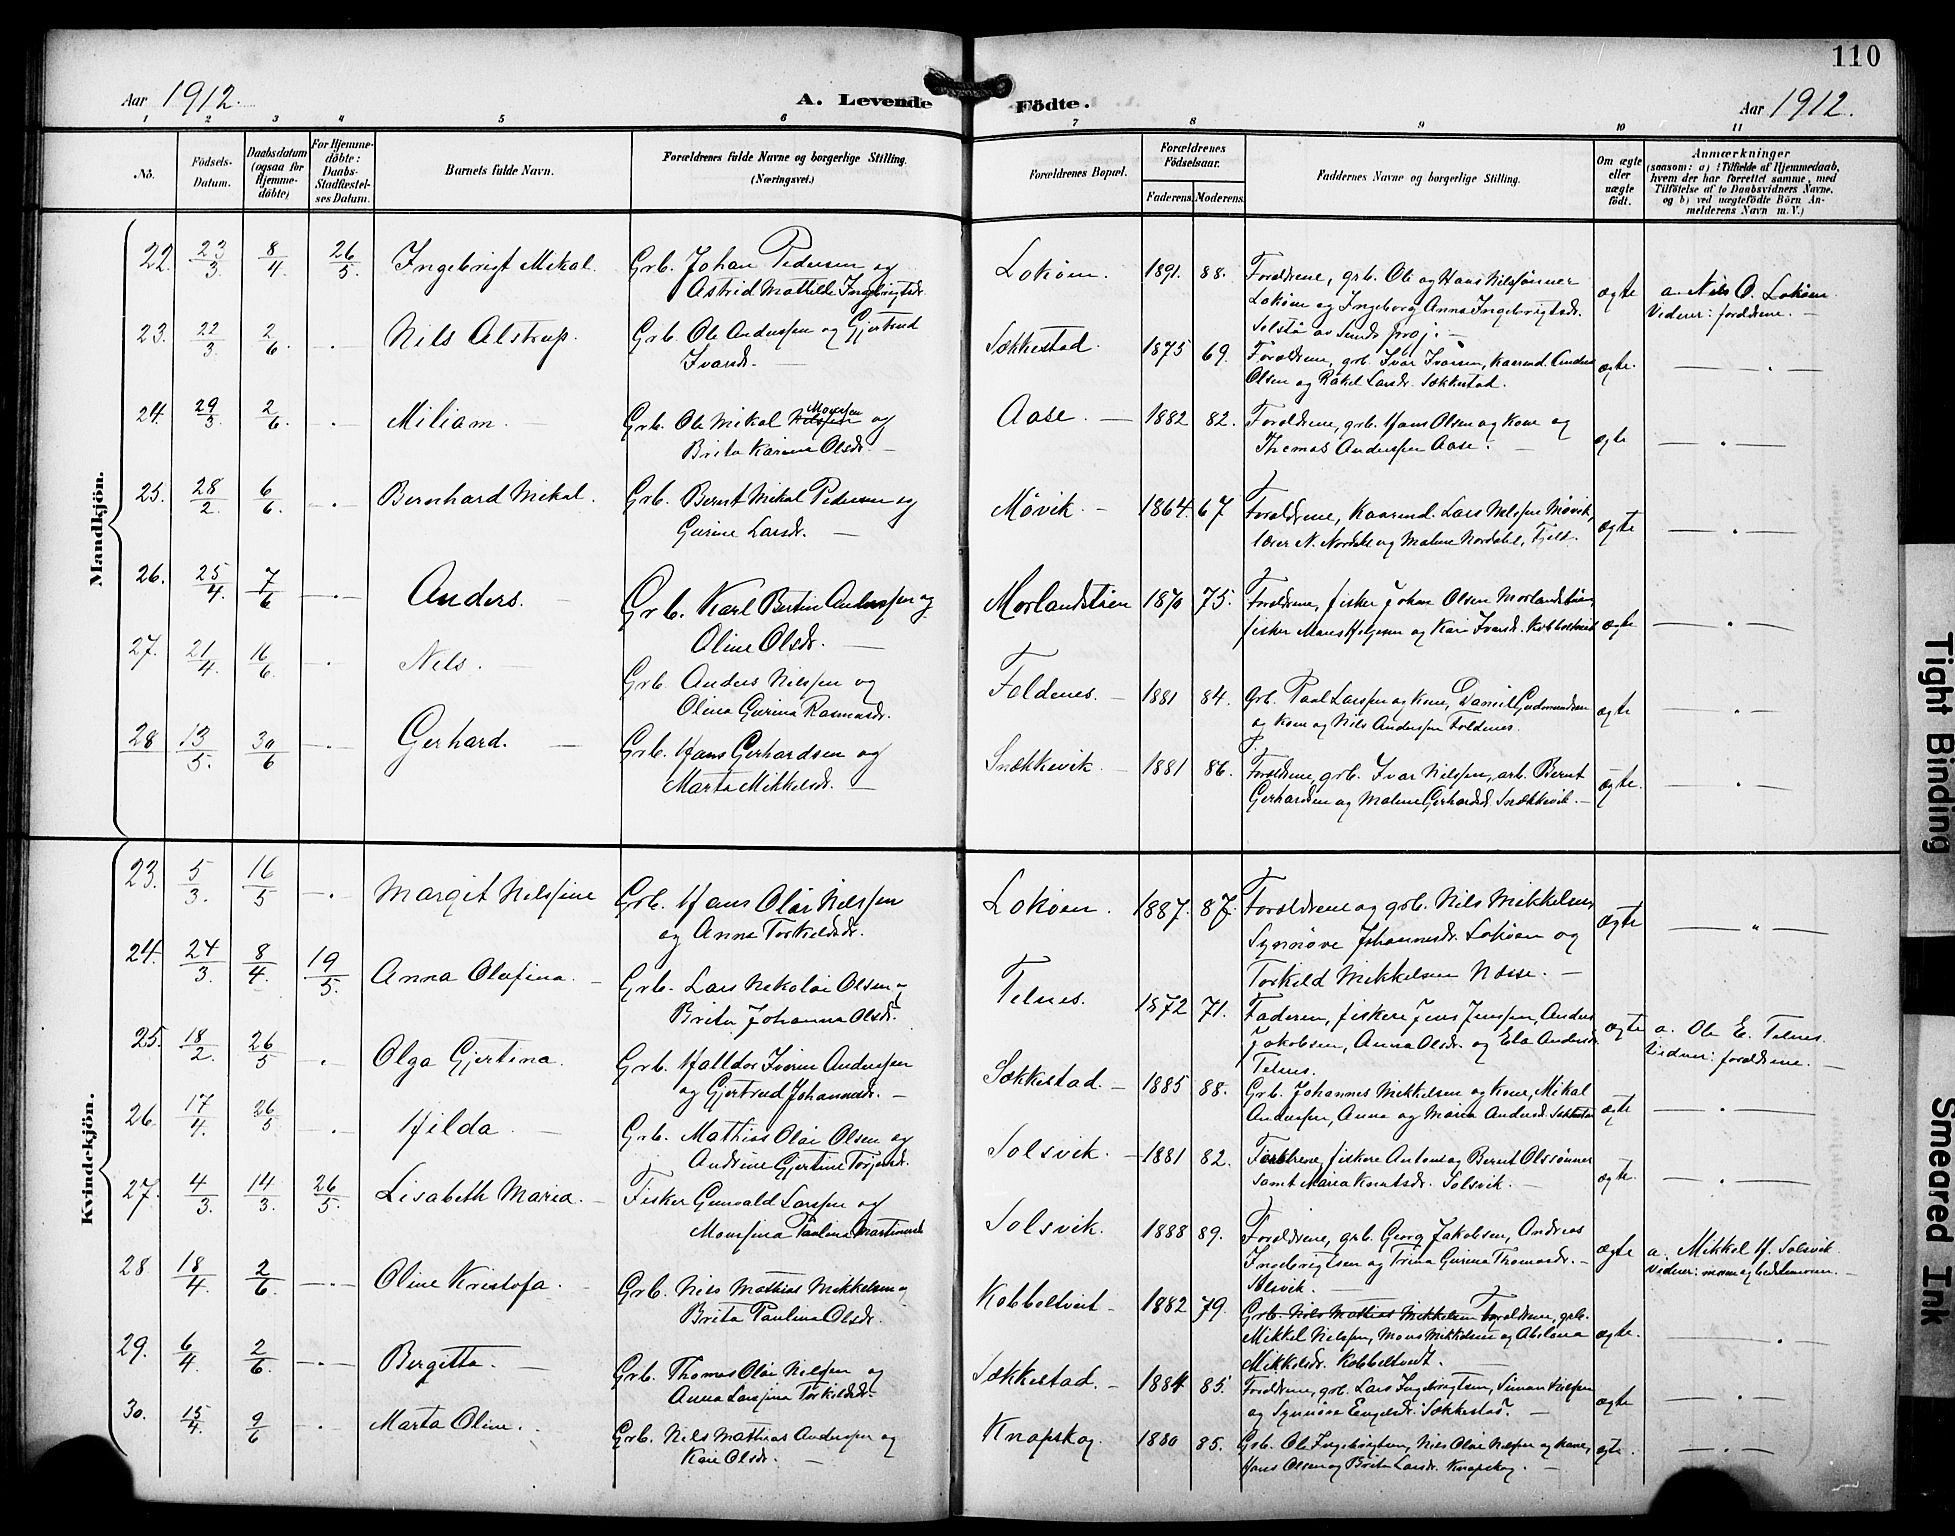 110
Aar 1912.
A. Levende Födte.
Aar 1912.
1 2 3 4 5 6 7 8 9 10 11
No.
Födsels-Datum.
Daabsdatum (ogsaa for Hjemmedöbte)
For Hjemmedöbte: Daabs-Stadfæstelses Datum.
Barnets fulde Navn.
Forældrenes fulde Navne og borgerlige Stilling.
(Næringsvei.)
Forældrenes Bopæl.
Forældrenes Födselsaar.
Faderens. Moderens.
Faddernes Navne og borgerlige Stilling.
Om ægte eller uægte födt.
Anmærkninger
(saasom: a) i Tilfælde af Hjemmedaab,
hvem der har forrettet samme, med
Tilföielse af to Daabsvidners Navne,
og b) ved uægtefödte Börn An-
melderens Navn m. V.)
Mandkjön.
22. 23/3 8/4 26/5 Ingebrigt Mikal. Grb. Johan Pedersen og
Astrid Mathilde Ingebrigtsdr.
Lokøen. 1891. 88. Forældrene, grb. Ole og Hans Nilssønner
Lokøen og Ingeborg Anna Ingebrigtsdr.
Solstø av Sunds prgj.
ægte a. Nils O. Lokøen.
Vidner: forældrene.
23. 22/3 2/6. Nils Alstrup. Grb. Ole Anderssen og Gjertrud
Ivarsd.
Sækkestad. 1875 69. Forældrene, grb. Ivar Ivarsen, Kaarmd. Anders
Olsen og Rakel Larsdr. Sækkestad.
ægte.
24. 29/3 2/6. Miliam. Grb. Ole Mikal Nilssen Monssen og
Brita Karina Olsdr.
Aase. 1882 82. Forældrene, grb. Hans Olsen og Kone og
Thomas Anderssen Aase.
ægte
25. 28/2 6/6 Bernhard Mikal. Grb. Bernt Mikal Pedersen og
Gurine Larsdr.
Møvik. 1864. 67 Forældrene, Kaarmd. Lars Nelssen Møvik,
lærer N. Nordal og Malene Nordal, Fjeld.
ægte
26. 25/4 7/6 Anders. Grb. Karl Bertin Anderssen og
Oline Olsdr.
Morlandstøen 1870 75. Forældrene, fisker Johan Olsen Morlandstøen,
fisker Mons Helgesen og Kari Ivarsd. Kobbeltveit
ægte
27. 21/4 16/6 Nels. Grb. Anders Nilssen og
Olina Gurina Rasmusdr.
Foldenes. 1881 84. Grb. Paul Larssen og Kone, Daniel Gudmundsen
og Kone og Nils Anderssen Foldenes.
ægte
28 13/5. 30/6 Gerhard. Grb. Hans Gerhardsen og
Marta Mikkelsdr.
Snækkevik. 1881 86. Forældrene, grb. Ivar Nilssen, arb. Bernt
Gerhardsen og Malene Gerhardsd. Snækkevik.
ægte.
Kvindekjön.
23. 5/3. 16/5 Margit Nilssine Grb. Hans Olai Nilssen
og Anna Torkeldsdr.
Lokøen. 1887. 87. Forældrene og grb. Nils Mikkelsen,
Synnøve Johannesdr. Lokøen og
Torkeld Mikkelsen Næsse.
ægte
24. 24/3. 8/4 19/5. Anna Olufina. Grb. Lars Nikolai Olsen og
Brita Johanna Olsdr.
Telnes. 1872 71. Faderen, fiskere Jens Jenssen, Anders
Jakobsen, Anna Olsdr. og Ela Andersdr.
Telnes.
ægte a. Ole E. Telnes.
Vidner: forældrene.
25. 18/2. 26/5 Olga Gjertina. Grb. Halldor Iverin Anderssen
og Gjertrud Johannesdr.
Sækkestad. 1885 88. Grb. Johannes Mikkelsen og Kone, Mikal
Anderssen, Anna og Maria Andersd. Sækkestad
ægte
26. 17/4 26/5 Hilda Grb. Mathias Olai Olsen og
Andrine Gjertine Torjersdr.
Solsvik. 1881 82. Forældrene, fiskere Antone og Bernt Olssønner
samt Maria Knutsdr. Solsvik.
ægte.
27. 4/3. 14/3. 26/5. Lisabeth Maria. Fisker Gunvald Larssen og
Monssina Paulina Martinusdr
Solsvik. 1888 89. Forældrene, grb. Georg Jakobsen, Andreas
Ingebrigtsen og Trina Gurina Thomasdr.
Solsvik.
ægte a. Mikkel H. Solsvik
Vidner: mor og bedstemoren.
28 18/4 2/6. Oline Kristofa. Grb. Nils Mathias Mikkelsen og
Brita Paulina Olsdr.
Kobbeltveit 1882 79. Grb. Nils Mathias Mikkelsen Forældrene, grb.
Mikkel Nilssen, Mons Mikkelsen og Abelona
Mikkelsdr. Kobbeltveit.
ægte.
29. 6/4 2/6. Bergitta. Grb. Thomas Olai Nilssen og
Anna Larssina Torkeldsdr.
Sækkestad. 1884 85. Forældrene, grb. Lars Ingebrigtsen, Simon Nilssen
og Synnøva Engelsdr. Sækkestad.
ægte
30. 15/4. 9/6 Marta Oline. Grb. Nils Mathias Anderssen og
Kari Olsdr.
Knapskog 1880 85. Grb. Ole Ingebrigtsen, Nils Olai Nilssen og kone,
Hans Olsen og Brita Larsdr. Knapskog.
ægte.
Tight Binding
Smeared Ink